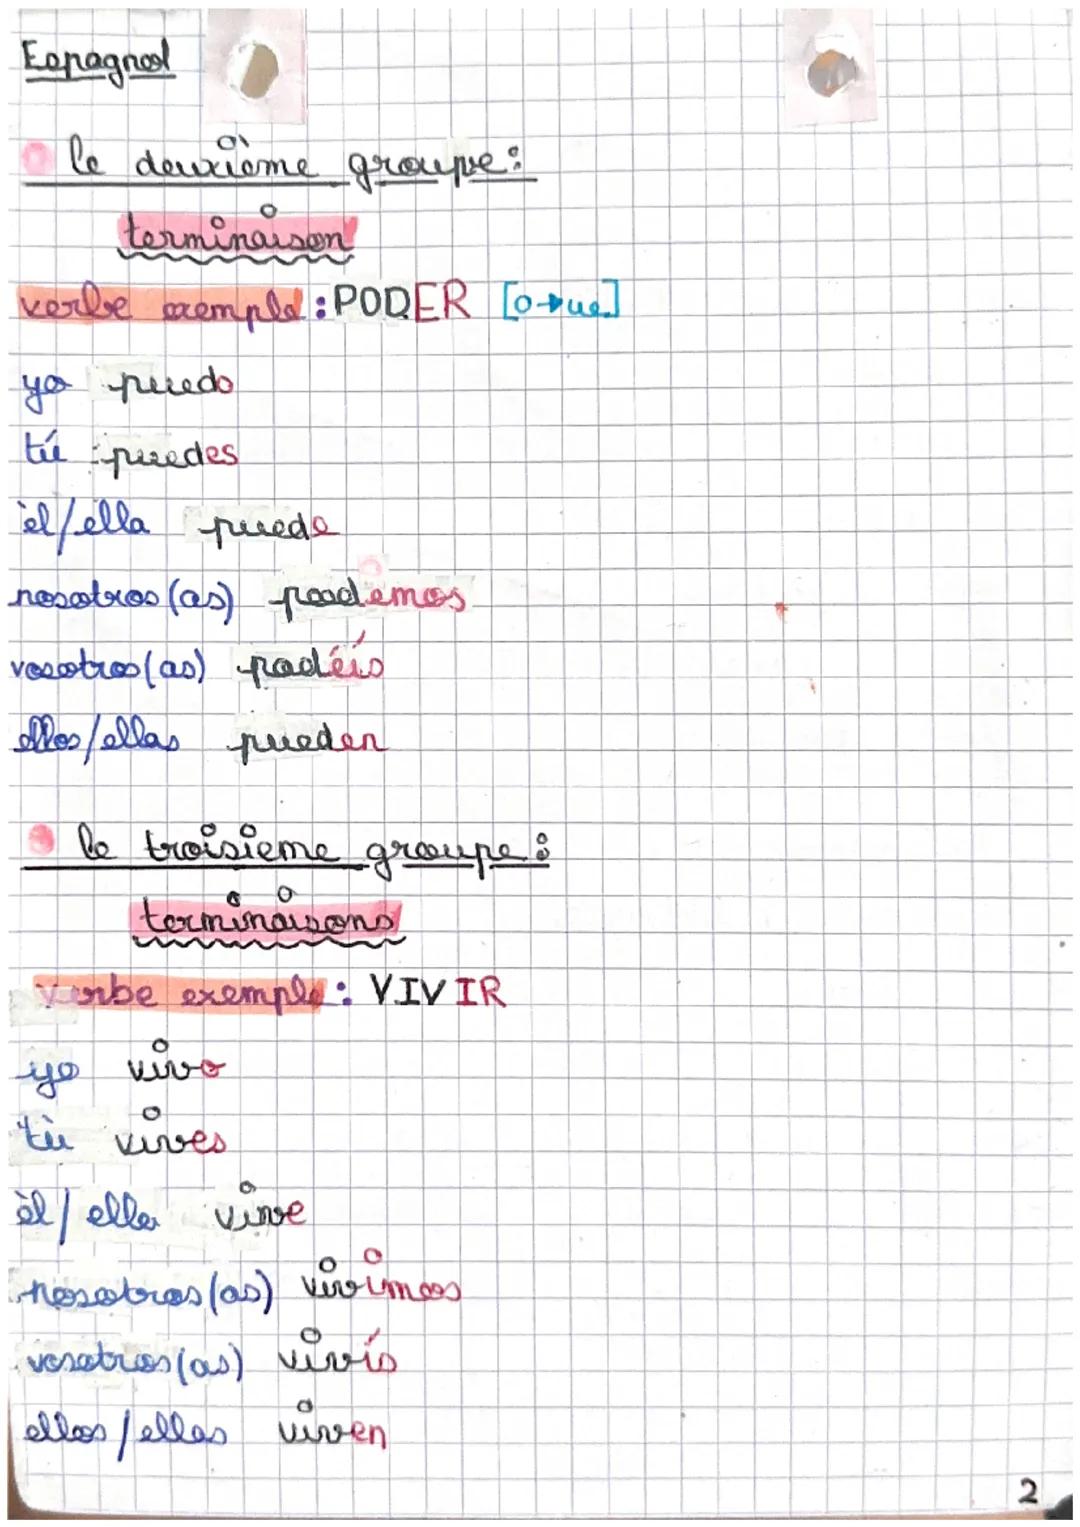 Espagnol
le deuxième groupe :
terminaison
verbe exemple : PODER [o→ue]
yo puedo
tú puedes
èl/ella puede
nosotros (as) podemos
vosotros (as) podéis
ellos/ellas pueden
le troisieme groupe :
terminaisons
verbe exemple : VIVIR
yo vivo
tù vives
èl/ella vive
nosotros (as) vivimos
vosotros (as) vivís
ellos/ellas viven
2